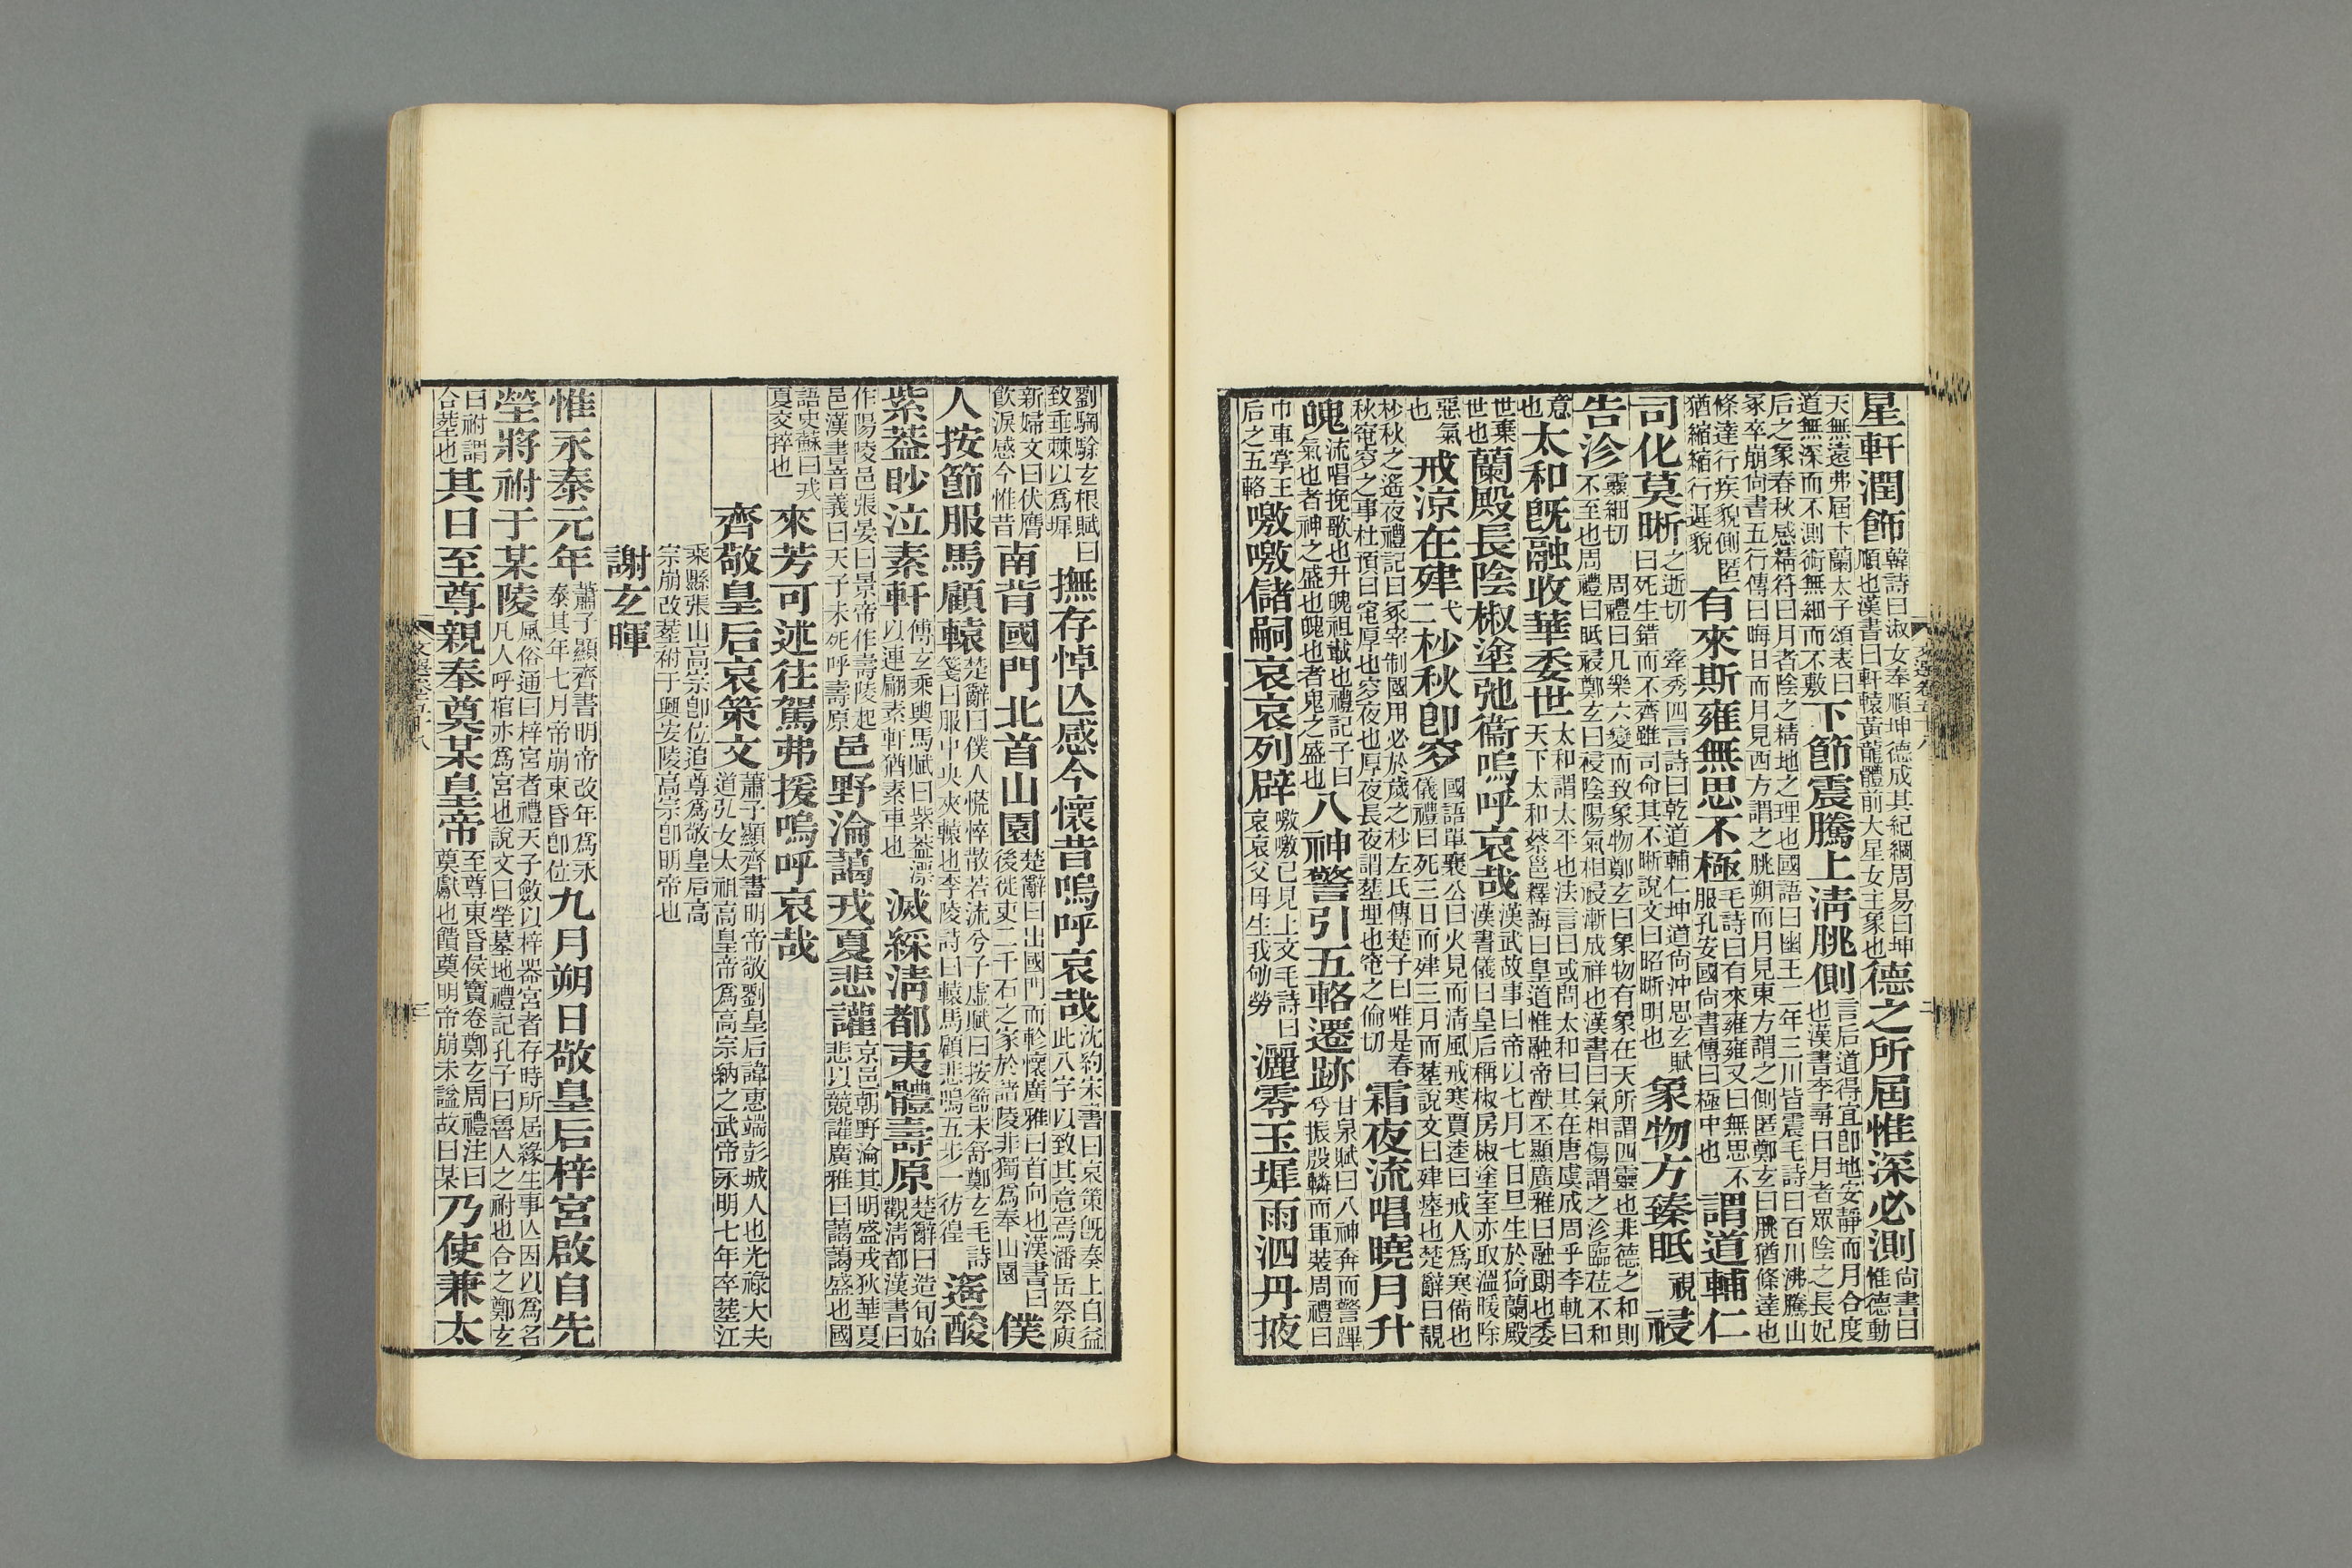 星軒潤飾韓詩曰淑女奉順坤德成其紀綱周易曰坤順也漢書曰軒轅黃龍體前大星女主象也德之所屆惟深必測尚書曰惟德動
天無遠弗屆卞蘭太子頌表曰道無深而不測術無細而不敷下節震騰上清朓側言后道得宜即地安靜而月合度也漢書李尋曰月者眾陰之長妃
后之象春秋感精符曰月者陰之精地之理也國語曰幽王二年三川皆震毛詩曰百川沸騰山冢卒崩尚書五行傳曰晦日而月見西方謂之朓朔而月見東方謂之側匿鄭玄曰朓猶條達也
條達行疾貌側匿猶縮縮行遲貌有來斯雍無思不極毛詩曰有來雍雍又曰無思不服孔安國尚書傳曰極中也謂道輔仁
司化莫晰之逝切 牽秀四言詩曰乾道輔仁坤道尚沖思玄賦曰死生錯而不齊雖司命其不晰說文曰昭晰明也象物方臻眡視祲
告沴靈細切 周禮曰凡樂六變而致象物鄭玄曰象物有象在天所謂四靈也非德之和則不至也周禮曰眡祲鄭玄曰祲陰陽氣相祲漸成祥也漢書曰氣相傷謂之沴臨莅不和
意也太和旣融收華委世太和謂太平也法言曰或問太和曰其在唐虞成周乎李軌曰天下太和蔡邕釋誨曰皇道惟融帝猷丕顯廣雅曰融朗也委
世棄世也蘭殿長陰椒塗弛衞嗚呼哀哉漢武故事曰帝以七月七日旦生於猗蘭殿漢書儀曰皇后稱椒房椒塗室亦取溫暖除
惡氣也戒涼在肂弋二杪秋即穸國語單襄公曰火見而清風戒寒賈逵曰戒人爲寒備也儀禮曰死三日而肂三月而葬說文曰肂瘞也楚辭曰靚
杪秋之遙夜禮記曰冢宰制國用必於歲之杪左氏傳楚子曰唯是春秋窀穸之事杜預曰窀厚也穸夜也厚夜長夜謂葬埋也窀之倫切霜夜流唱曉月升
魄流唱挽歌也升魄祖載也禮記子曰氣也者神之盛也魄也者鬼之盛也八神警引五輅遷跡甘泉賦曰八神奔而警蹕兮振殷轔而軍裝周禮曰
巾車掌王后之五輅噭噭儲嗣哀哀列辟噭噭已見上文毛詩曰哀哀父母生我劬勞灑零玉墀雨泗丹掖
文選卷五十八
二
劉騊駼玄根賦曰致垂棘以爲墀撫存悼亾感今懷昔嗚呼哀哉沈約宋書曰哀策旣奏上自益此八字以致其意焉潘岳祭庾
新婦文曰伏膺飲淚感今惟昔南背國門北首山園楚辭曰出國門而軫懷廣雅曰首向也漢書曰後徙吏二千石之家於諸陵非獨爲奉山園僕
人按節服馬顧轅楚辭曰僕人慌悴散若流兮子虛賦曰按節未舒鄭玄毛詩箋曰服中央夾轅也李陵詩曰轅馬顧悲鳴五步一彷徨遙酸
紫葢眇泣素軒傅玄乘輿馬賦曰紫葢漂以連翩素軒猶素車也滅綵淸都夷體壽原楚辭曰造旬始觀淸都漢書曰
作陽陵邑張晏曰景帝作壽陵起邑漢書音義曰天子未死呼壽原邑野淪藹戎夏悲讙京邑朝野淪其明盛戎狄華夏悲以競讙廣雅曰藹藹盛也國
語史蘇曰戎夏交捽也來芳可述往駕弗援嗚呼哀哉
齊敬皇后哀策文蕭子顯齊書明帝敬劉皇后諱惠端彭城人也光祿大夫道弘女太祖高皇帝爲高宗納之武帝永明七年卒葬江
乘縣張山高宗即位追尊爲敬皇后高宗崩改葬祔于興安陵高宗即明帝也
謝玄暉
惟永泰元年蕭子顯齊書明帝改年爲永泰其年七月帝崩東昏即位九月朔日敬皇后梓宮啟自先
塋將祔于某陵風俗通曰梓宮者禮天子斂以梓器宮者存時所居緣生事亾因以爲名凡人呼棺亦爲宮也說文曰塋墓地禮記孔子曰魯人之祔也合之鄭玄
曰祔謂合葬也其日至尊親奉奠某皇帝至尊東昏侯寶卷鄭玄周禮注曰奠獻也饋奠明帝崩未諡故曰某乃使兼太
文選卷五十八
三